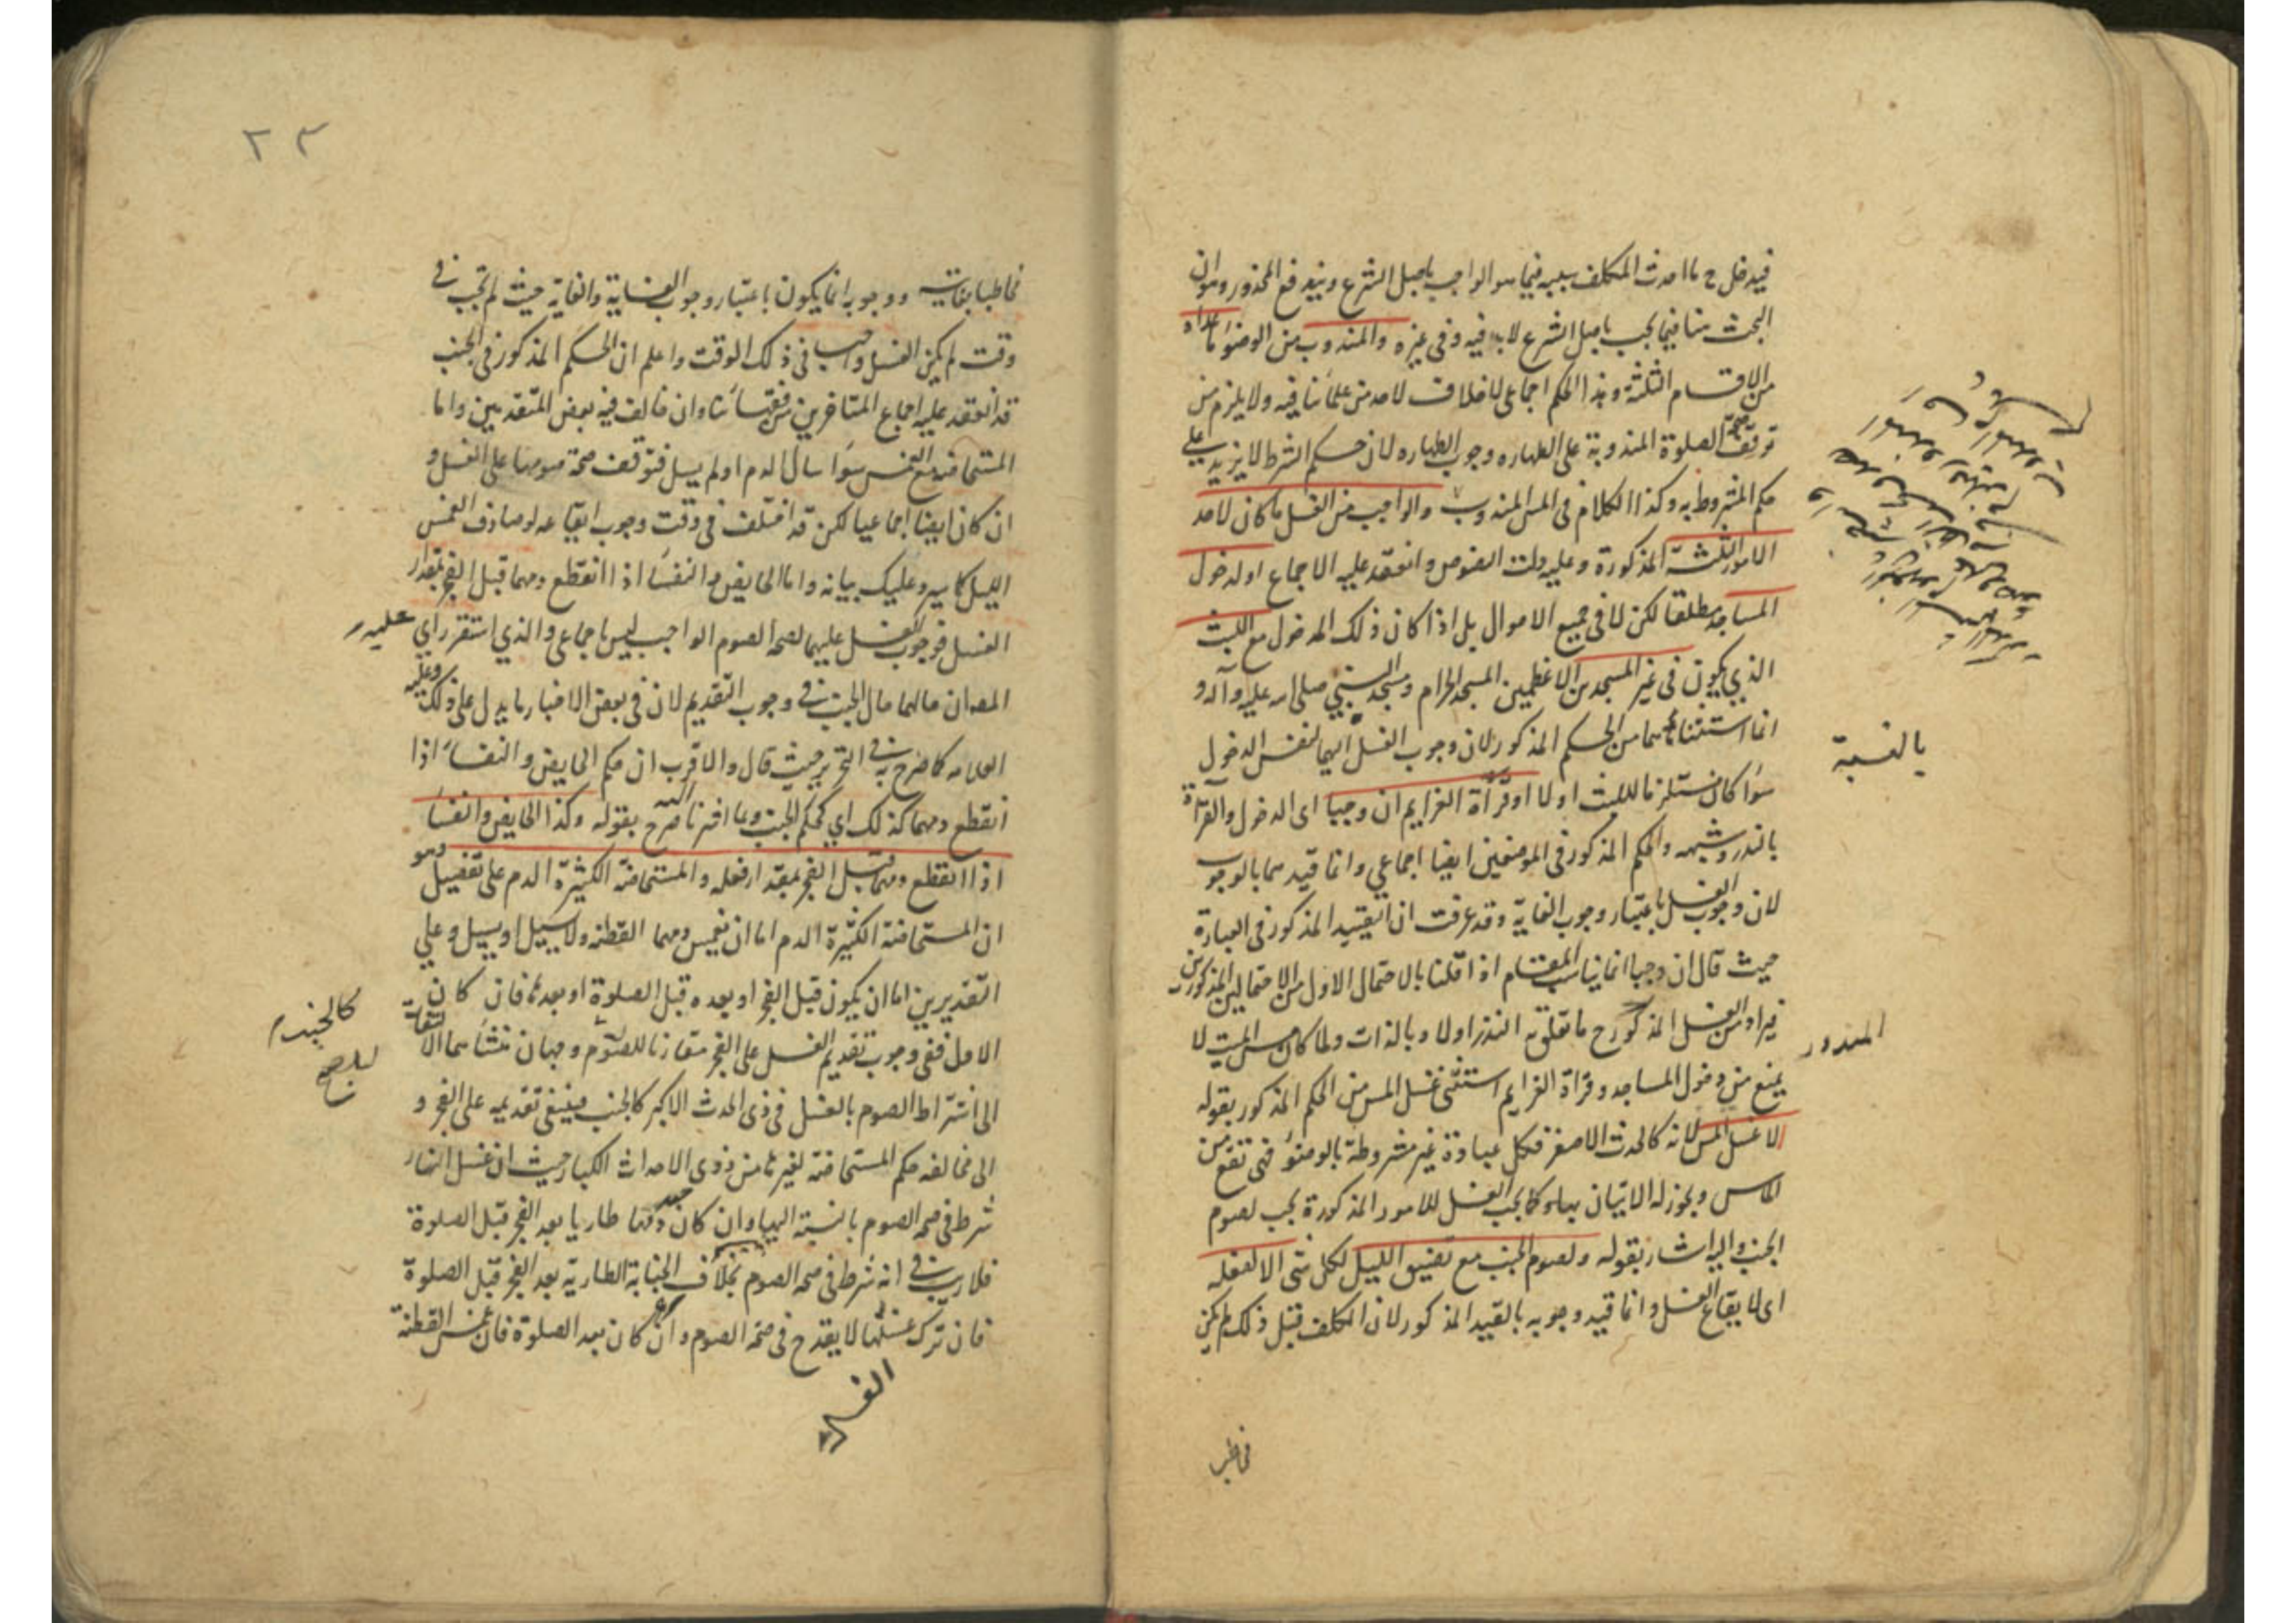 فيدخل ح ما احدث المكلف بسببه فيما هو الواجب باصل الشرع وبندفع المحذور وان
البحث هنا فيما يجب باصل الشرع لا به فيه وفى غيره والمندوب من الوضوء ما عداه
من الاقسام الثلثة وهذا الحكم اجماعى لا خلاف لاحد من علمائنا فيه ولا يلزم من
توقف صحة الصلوة المندوبة على الطهاره وجوب الطهاره لان حكم الشرط لا يزيد على
حكم المشروط به وكذا الكلام فى المس المندوب والواجب من الغسل ما كان لاحد
الامور الثلثة المذكورة وعليه دلت النصوص وانعقد عليه الاجماع او لدخول
المساجد مطلقا لكن لا فى جميع الاحوال بل اذا كان ذلك الدخول مع اللبث
الذي يكون فى غير المسجدين الاعظمين المسجد الحرام ومسجد النبي صلى الله عليه وآله و
انما استثناهما من الحكم المذكور لان وجوب الغسل اليهما لنفس الدخول
بالنسبة
سواء كان مستلزما للبث او لا او قرأة العزايم ان وجبا اى الدخول والقرأة
بالنذر وشبهه والحكم المذكور فى الموضعين ايضا اجماعي وانما قيدهما بالوجوب
لان وجوب الغسل باعتبار وجوب الغاية وقد عرفت ان التقييد المذكور فى العبارة
حيث قال ان وجبا انما يناسب المقام اذا قلنا بالاحتمال الاول من الاحتمالين المذكورين
فيراد من الغسل المذكور ح ما تعلق به النذر اولا وبالذات ولما كان مس الميت لا
المندور
يمنع من دخول المساجد وقرأة العزايم استثنى غسل المس من الحكم المذكور بقوله
الا غسل المس لانه كالحدث الاصغر فكل عبادة غير مشروطة بالوضوء فهى تقع من
الماس ويجوز له الاتيان بها وكما يجب الغسل للامور المذكورة يجب لصوم
الجنب واليه اشار بقوله ولصوم الجنب مع تضيق الليل لكل شى الا لفعله
اى لايقاع الغسل وانما قيد وجوبه بالقيد المذكور لان المكلف قبل ذلك لم يكن
مخاطبا
٢٣
مخاطبا بغايته ووجوبه انما يكون باعتبار وجوب الغاية والغاية حيث لم تجب فى
وقت لم يكن الغسل واجبا فى ذلك الوقت واعلم ان الحكم المذكور فى الجنب
قد انعقد عليه اجماع المتاخرين من فقهائنا وان خالف فيه بعض المتقدمين واما
المستحاضة مع الغمس سواء سال الدم او لم يسل فتوقف صحة صومها على الغسل و
ان كان ايضا اجماعيا لكن قد اختلف فى وقت وجوب ايقاعه لو صادف الغمس
الليل كما سيرد عليك بيانه واما الحايض والنفساء اذا انقطع دمهما قبل الفجر بمقدار
الغسل فوجوب الغسل عليهما لصحة الصوم الواجب ليس باجماعى والذي استقر راي
عليه
المص ان حالهما حال الجنب فى وجوب التقديم لان فى بعض الاخبار ما يدل على ذلك وعليه
العلامه كما صرح به فى التحرير حيث قال والاقرب ان حكم الحايض والنفساء اذا
انقطع دمهما كذلك اي كحكم الجنب وما اخترنا صرح بقوله وكذا الحايض والنفساء
اذا انقطع دمهما قبل الفجر بمقدار فعله والمستحاضة الكثيرة الدم على تفصيل وهو
ان المستحاضة الكثيرة الدم اما ان يغمس دمها القطنة ولا يسيل او يسيل وعلى
التقديرين اما ان يكون قبل الفجر او بعده قبل الصلوة او بعدها فان كان
الاول ففى وجوب تقديم الغسل على الفجر مقارنا للصوم وجهان منشأهما الالتفات
كالجنب
الى اشتراط الصوم بالغسل فى ذى الحدث الاكبر كالجنب فينبغى تقديمه على الفجر و
الى مخالفه حكم المستحاضة لغيرها من ذوى الاحداث الكبار حيث ان غسل النهار
شرط فى صحة الصوم بالنسبة اليها وان كان حدثها طاريا بعد الفجر قبل الصلوة
فلا ريب فى انه شرط فى صحة الصوم بخلاف الجنابة الطارية بعد الفجر قبل الصلوة
فان ترك غسلها لا يقدح فى صحة الصوم وان كان بعد الصلوة فان غمس القطنة